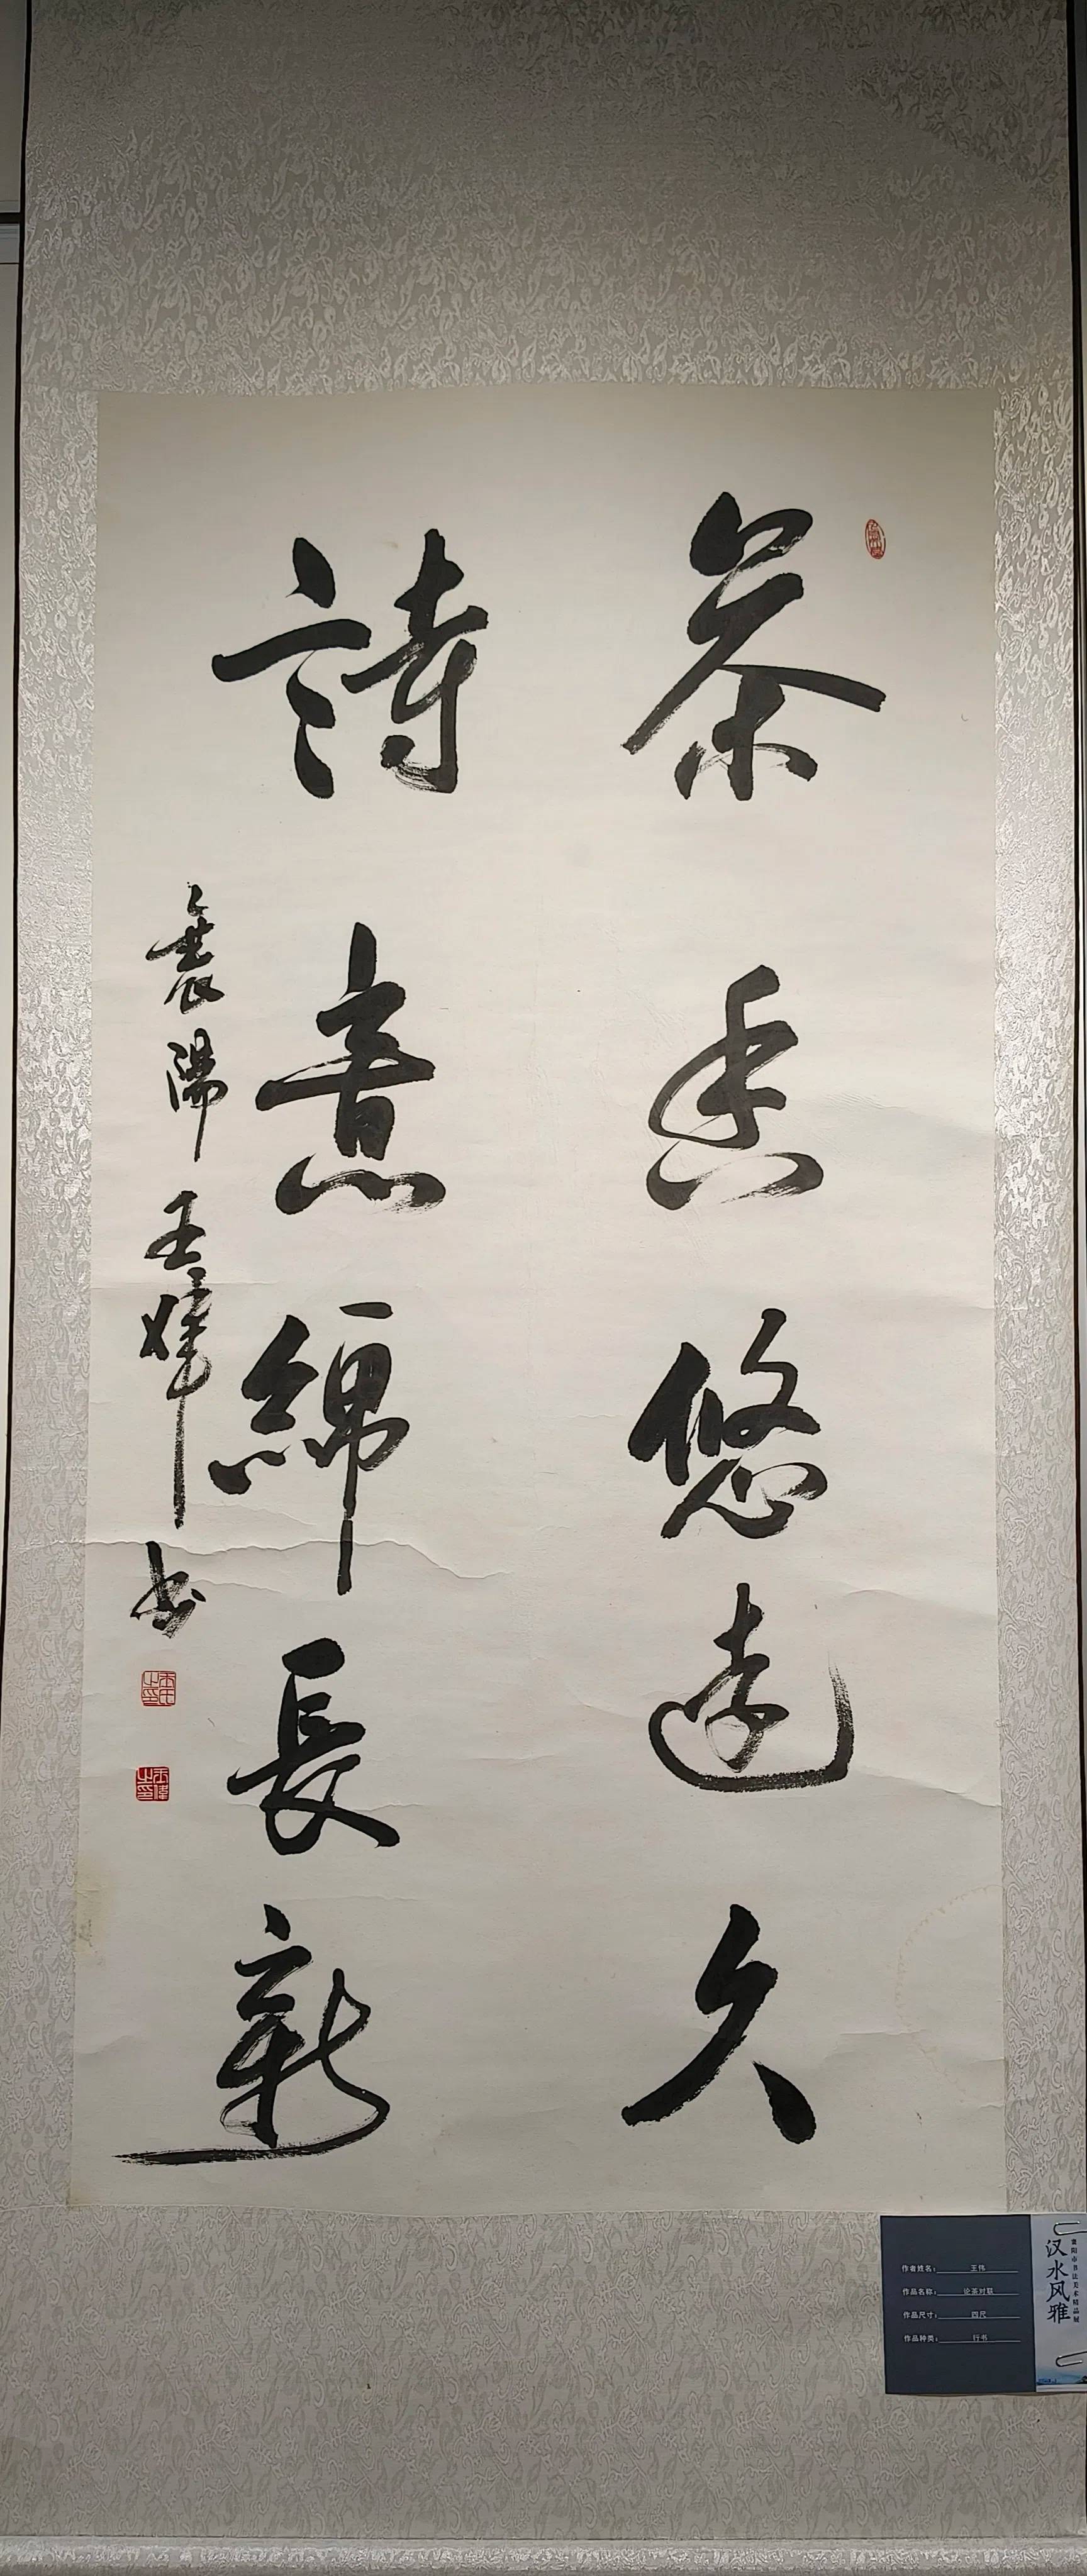 茶香悠远久
詩意綿長新
襄陽王偉书
王氏之印
王偉之印
作者姓名：王伟
作品名称：论茶对联
作品尺寸：四尺
作品种类：行书
汉水风雅
襄阳市书法美术精品展